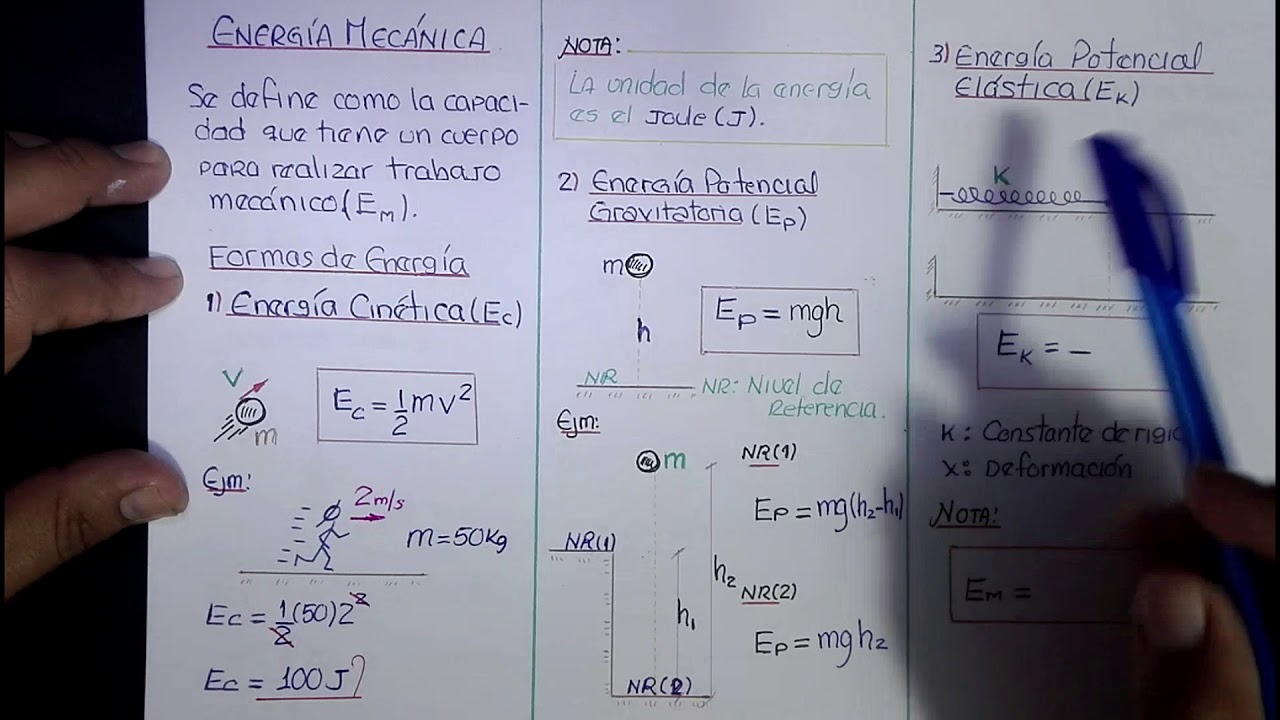 ENERGÍA MECÁNICA
Se define como la capaci-
dad que tiene un cuerpo
para realizar trabajo
mecánico(EM).
Formas de Energía
1) Energía Cinética(Ec)
V
m
Ec = 1/2 mv²
Ejm:
2m/s
m=50Kg
Ec = 1/2 (50)2²
Ec = 100J
NOTA:
La unidad de la energía
es el Joule (J).
2) Energía Potencial
Gravitatoria (Ep)
m
h
NR
Ep = mgh
NR: Nivel de
Referencia.
Ejm:
m
NR(1)
h1
h2
NR(2)
NR(1)
Ep = mg(h2-h1)
NR(2)
Ep = mgh2
3) Energía Potencial
Elástica (EK)
K
EK = –
K: Constante de
X: Deformación
NOTA:
EM =